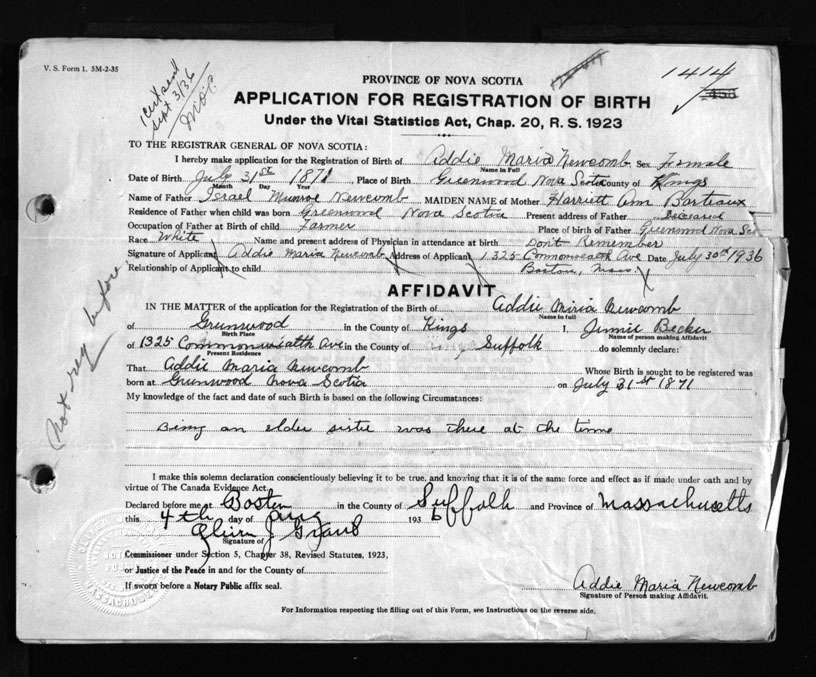 V. S. Form 1. 5M-2-35
Sept 3/36
1414
PROVINCE OF NOVA SCOTIA
APPLICATION FOR REGISTRATION OF BIRTH
Under the Vital Statistics Act, Chap. 20, R. S. 1923
TO THE REGISTRAR GENERAL OF NOVA SCOTIA:
I hereby make application for the Registration of Birth of Addie Maria Newcomb Sex Female
Name in Full
Date of Birth July 31st 1871 Place of Birth Greenwood Nova Scotia County of Kings
Month Day Year
Name of Father Israel Munroe Newcomb MAIDEN NAME of Mother Harriett Ann Barteaux
Residence of Father when child was born Greenwood Nova Scotia Present address of Father Deceased
Occupation of Father at Birth of child Farmer Place of birth of Father Greenwood Nova Sco
Race White Name and present address of Physician in attendance at birth Don't Remember
Signature of Applicant Addie Maria Newcomb Address of Applicant 1325 Commonwealth Ave Date July 30th 1936
Relationship of Applicant to child Boston, Mass.
Not reg before
AFFIDAVIT
IN THE MATTER of the application for the Registration of the Birth of Addie Miria Newcomb
Name in full
of Grunwood in the County of Kings I, Jennie Becker
Birth Place Name of person making Affidavit
of 1325 Commonwealth Ave in the County of Suffolk do solemnly declare:
Present Residence
That Addie Maria Newcomb Whose Birth is sought to be registered was
born at Grunwood Nova Scotia on July 31st 1871
My knowledge of the fact and date of such Birth is based on the following Circumstances:
Being an elder sister was there at the time
I make this solemn declaration conscientiously believing it to be true, and knowing that it is of the same force and effect as if made under oath and by
virtue of The Canada Evidence Act.
Declared before me at Boston in the County of Suffolk and Province of Massachusetts
this 4th day of Aug 1936
Signature of
Commissioner under Section 5, Chapter 38, Revised Statutes, 1923,
or Justice of the Peace in and for the County of
If sworn before a Notary Public affix seal.
Addie Maria Newcomb
Signature of Person making Affidavit.
For Information respecting the filling out of this Form, see Instructions on the reverse side.